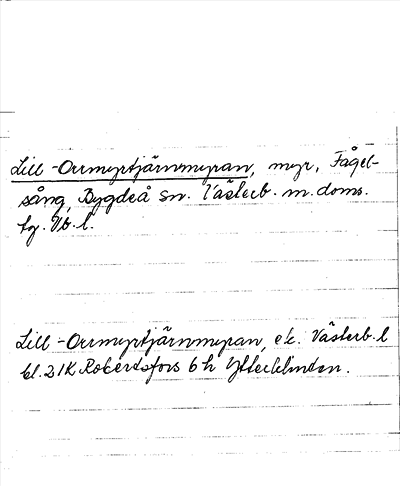 Lill-Orrmyrtjärnmyran, myr, Fågel-
sång, Bygdeå sn. Västerb. m. doms.
fg. Vb. l.
Lill-Orrmyrtjärnmyran, ek. Västerb. l
bl. 21K Robertsfors 6h Ytterklinten.